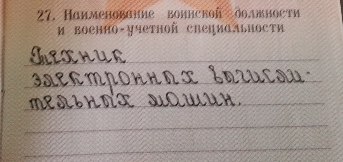 27. Наименование воинской должности
и военно-учетной специальности
Техник
электронных вычисли-
тельных машин.